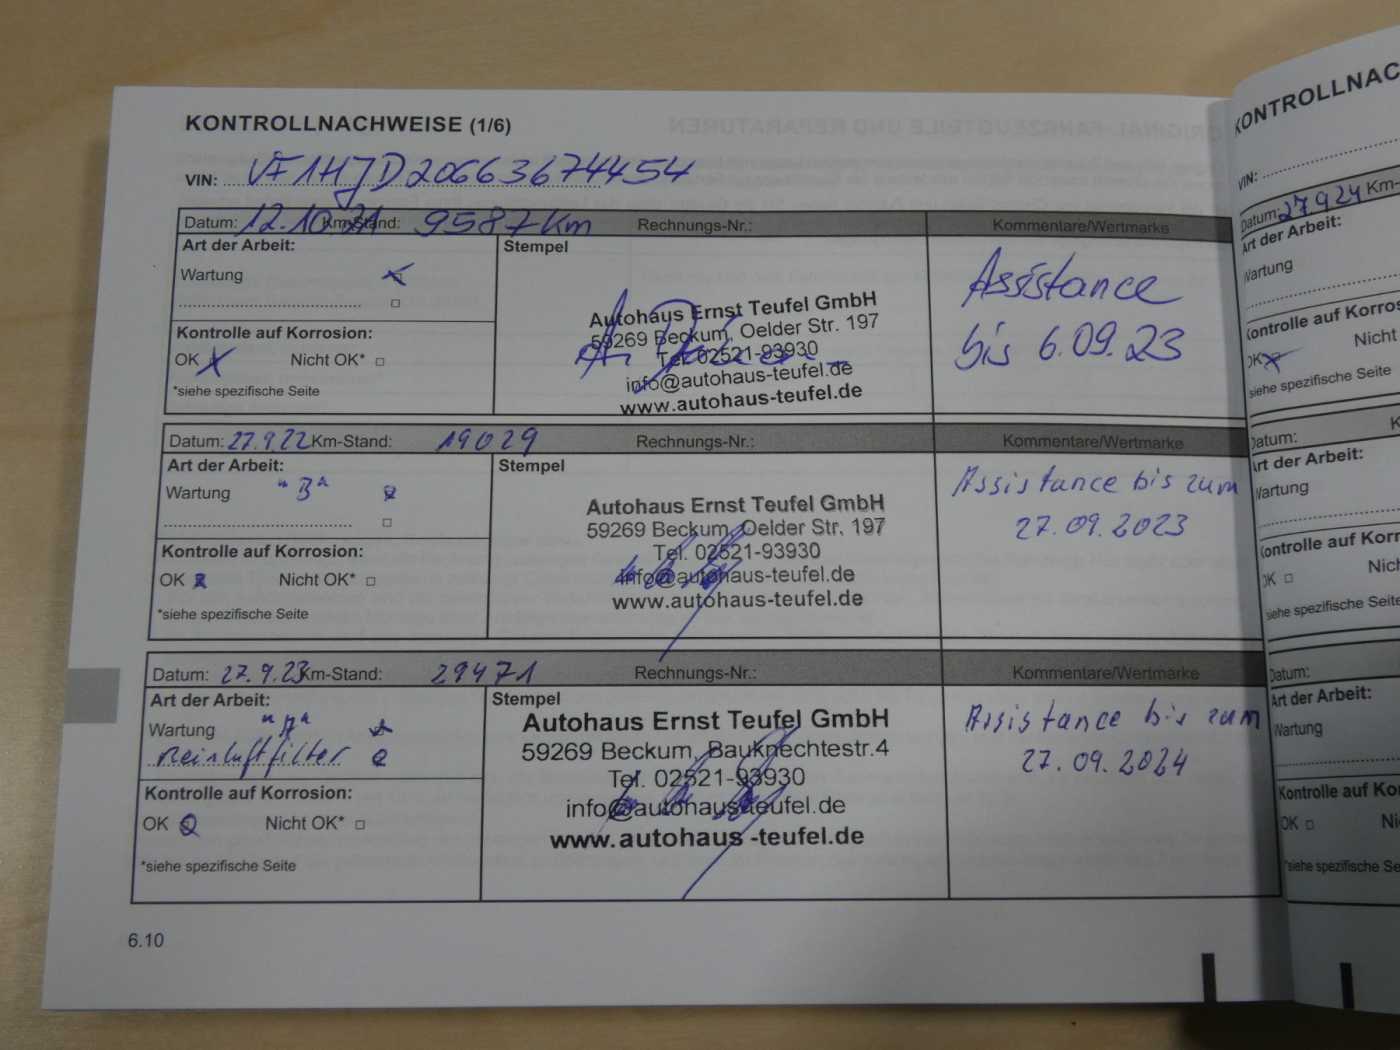 KONTROLLNACHWEISE (1/6)
VIN: VF1HJD20663674454
Datum: 12.10.21 Km-Stand: 9587Km Rechnungs-Nr.: Kommentare/Wertmarke
Art der Arbeit:
Stempel
Wartung
Kontrolle auf Korrosion:
OK Nicht OK*
*siehe spezifische Seite
Autohaus Ernst Teufel GmbH
59269 Beckum, Oelder Str. 197
Tel. 02521-93930
info@autohaus-teufel.de
www.autohaus-teufel.de
Assistance
bis 6.09.23
Datum: 27.9.22 Km-Stand: 19029 Rechnungs-Nr.: Kommentare/Wertmarke
Art der Arbeit:
Stempel
Wartung "B"
Kontrolle auf Korrosion:
OK Nicht OK*
*siehe spezifische Seite
Autohaus Ernst Teufel GmbH
59269 Beckum, Oelder Str. 197
Tel. 02521-93930
info@autohaus-teufel.de
www.autohaus-teufel.de
Assistance bis zum
27.09.2023
Datum: 27.9.23 Km-Stand: 29471 Rechnungs-Nr.: Kommentare/Wertmarke
Art der Arbeit:
Stempel
Wartung "A"
Reinluftfilter
Kontrolle auf Korrosion:
OK Nicht OK*
*siehe spezifische Seite
Autohaus Ernst Teufel GmbH
59269 Beckum, Bauknechtestr.4
Tel. 02521-93930
info@autohaus-teufel.de
www.autohaus -teufel.de
Assistance bis zum
27.09.2024
6.10
KONTROLLNAC
VIN:
Datum: 27.9.24 Km-
Art der Arbeit:
Wartung
Kontrolle auf Korros
OK Nicht
*siehe spezifische Seite
Datum: K
Art der Arbeit:
Wartung
Kontrolle auf Korr
OK Nich
*siehe spezifische Seite
Datum:
Art der Arbeit:
Wartung
Kontrolle auf Ko
OK Ni
*siehe spezifische Se